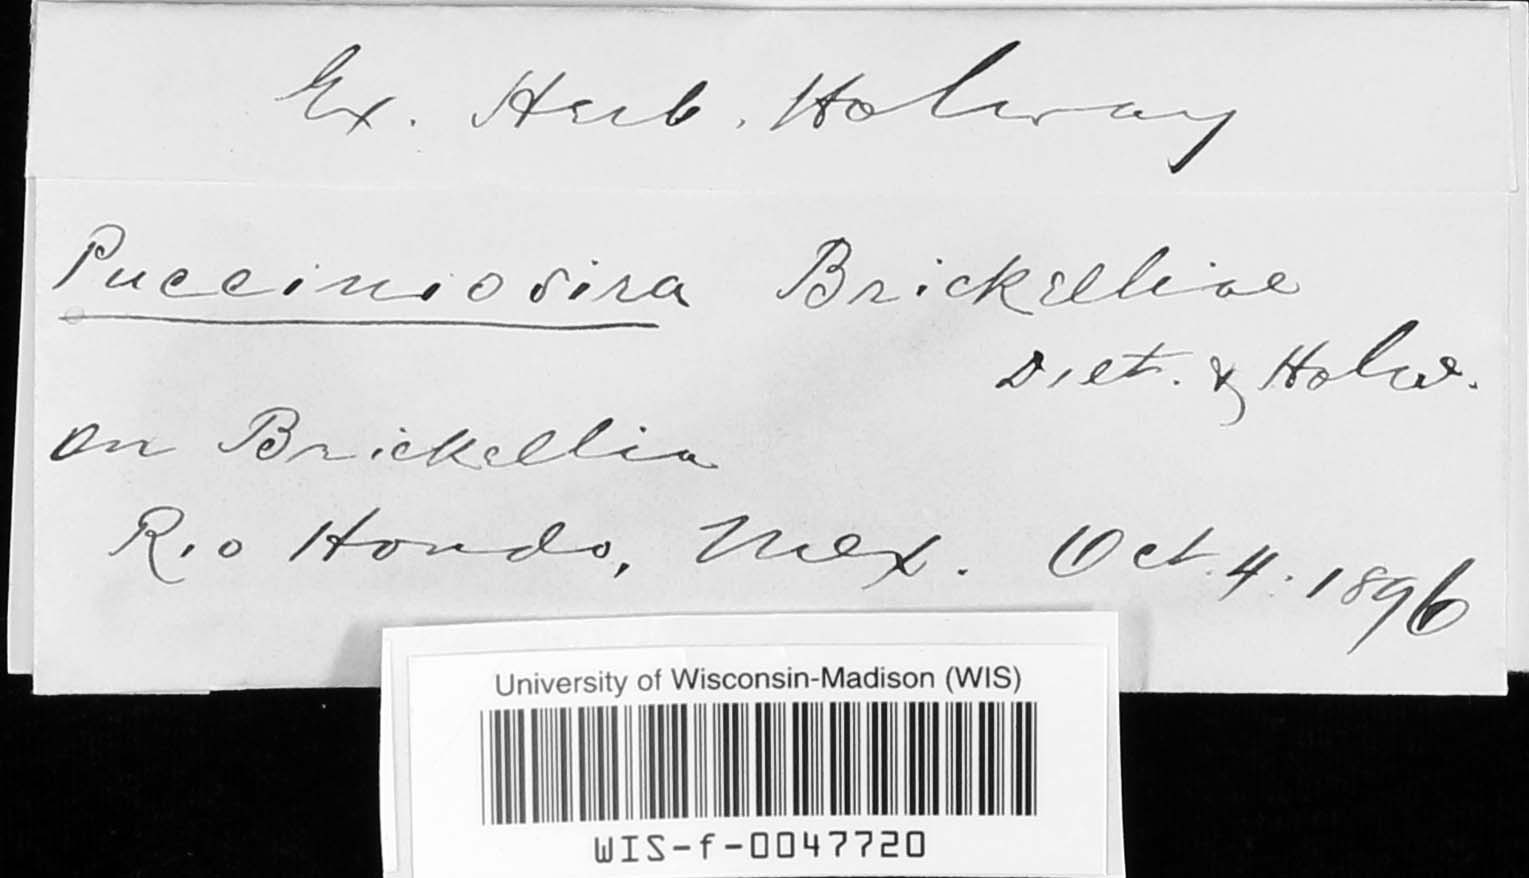 Ex. Herb. Holway
Pucciniosira Brickelliae
Diet. & Holw.
on Brickellia
Rio Hondo, Mex. Oct. 4. 1896
University of Wisconsin-Madison (WIS)
WIS-f-0047720